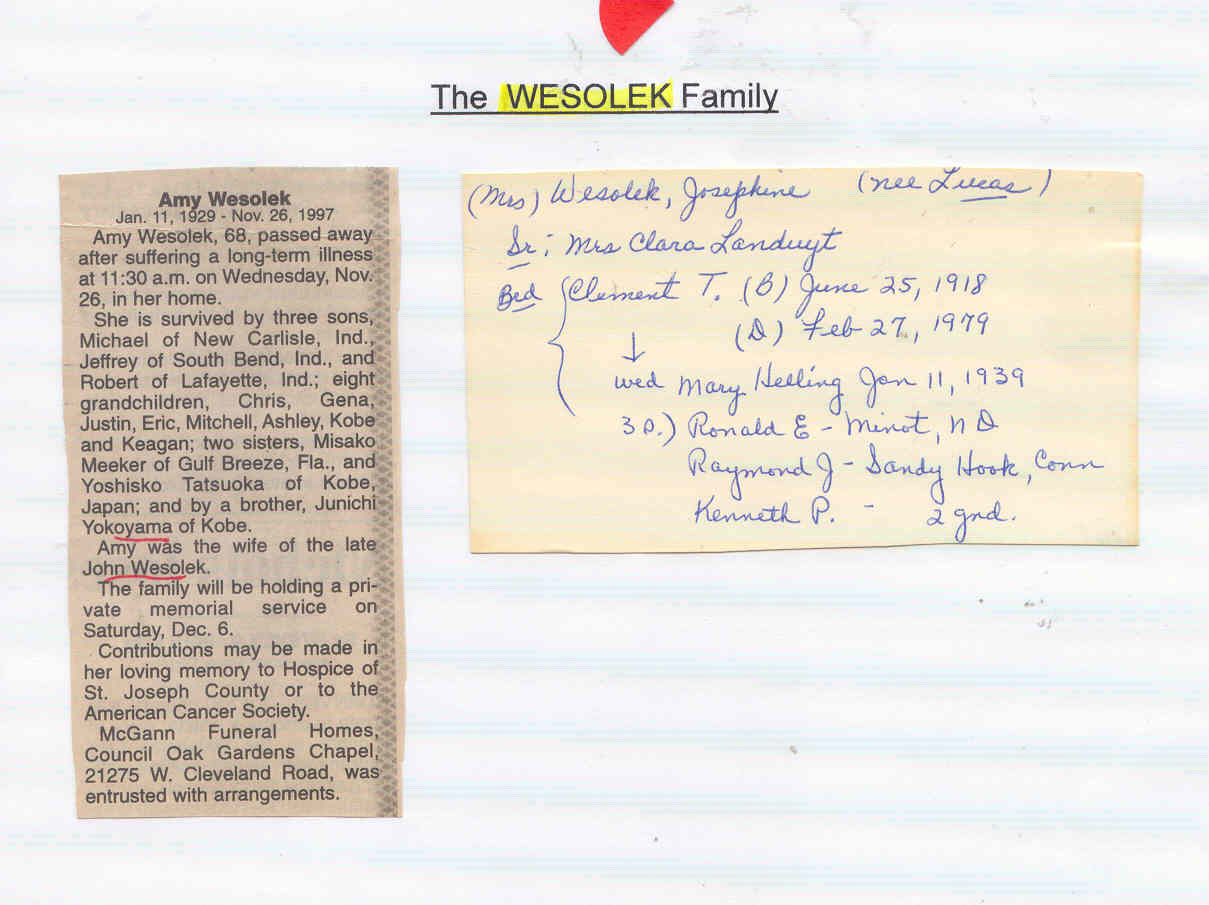 The WESOLEK Family
Amy Wesolek
Jan. 11, 1929 - Nov. 26, 1997
Amy Wesolek, 68, passed away
after suffering a long-term illness
at 11:30 a.m. on Wednesday, Nov.
26, in her home.
She is survived by three sons,
Michael of New Carlisle, Ind.,
Jeffrey of South Bend, Ind., and
Robert of Lafayette, Ind.; eight
grandchildren, Chris, Gena,
Justin, Eric, Mitchell, Ashley, Kobe
and Keagan; two sisters, Misako
Meeker of Gulf Breeze, Fla., and
Yoshisko Tatsuoka of Kobe,
Japan; and by a brother, Junichi
Yokoyama of Kobe.
Amy was the wife of the late
John Wesolek.
The family will be holding a pri-
vate memorial service on
Saturday, Dec. 6.
Contributions may be made in
her loving memory to Hospice of
St. Joseph County or to the
American Cancer Society.
McGann Funeral Homes,
Council Oak Gardens Chapel,
21275 W. Cleveland Road, was
entrusted with arrangements.
(Mrs) Wesolek, Josephine (nee Lucas)
Sr: Mrs Clara Landuyt
Clement T. (B) June 25, 1918
(D) Feb 27, 1979
wed Mary Helling Jan 11, 1939
3 s.) Ronald E - Minot, ND
Raymond J - Sandy Hook, Conn
Kenneth P. - 2 gnd.